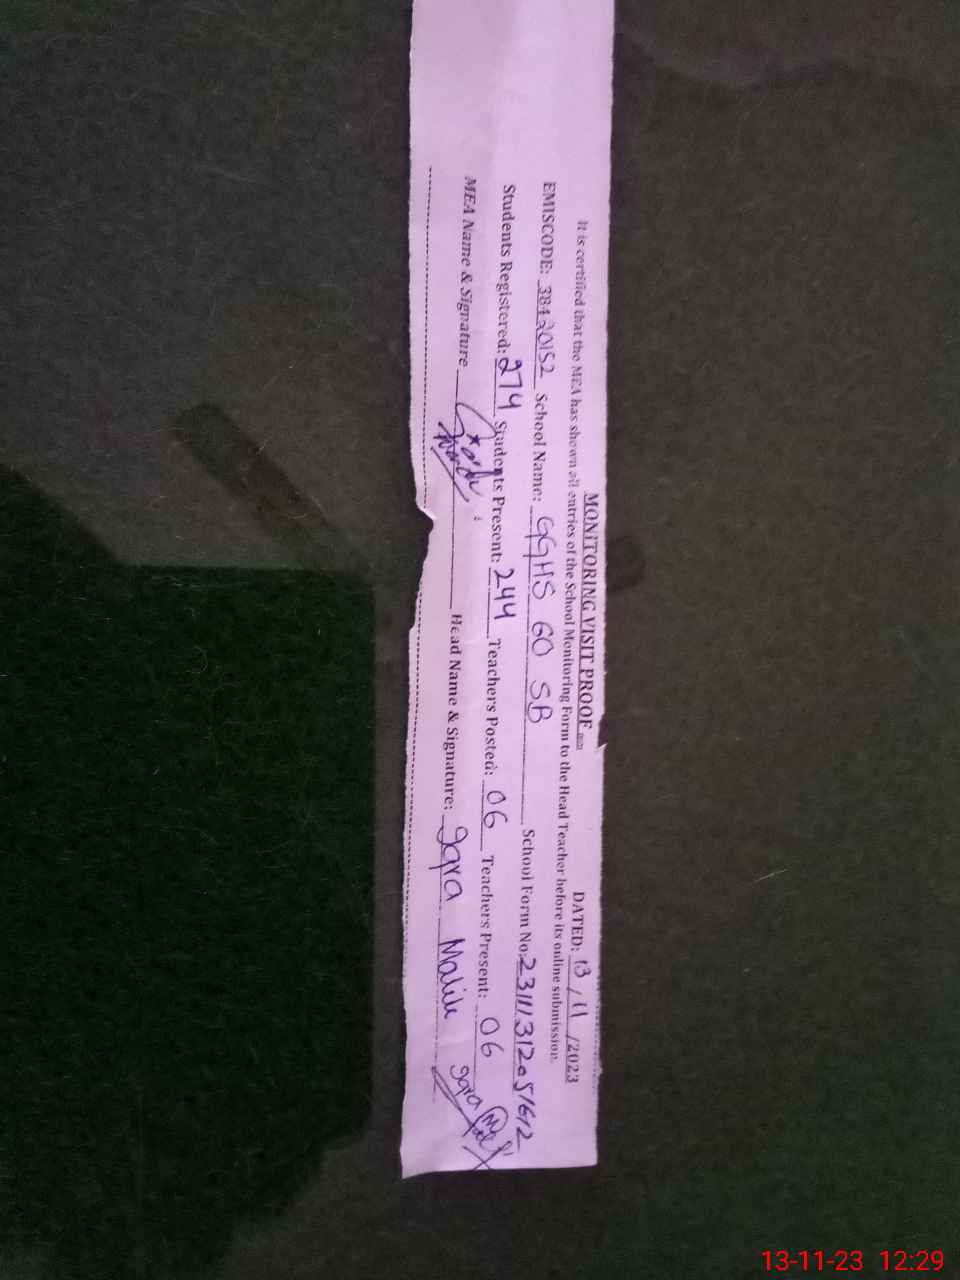 MONITORING VISIT PROOF
DATED: 13/11/2023
It is certified that the MEA has shown all entries of the School Monitoring Form to the Head Teacher before its online submission.
EMISCODE: 38420152 School Name: GGHS 60 SB School Form No: 23111312051612
Students Registered: 274 Students Present: 244 Teachers Posted: 06 Teachers Present: 06
MEA Name & Signature Head Name & Signature: Iqra Malik Iqra
13-11-23 12:29